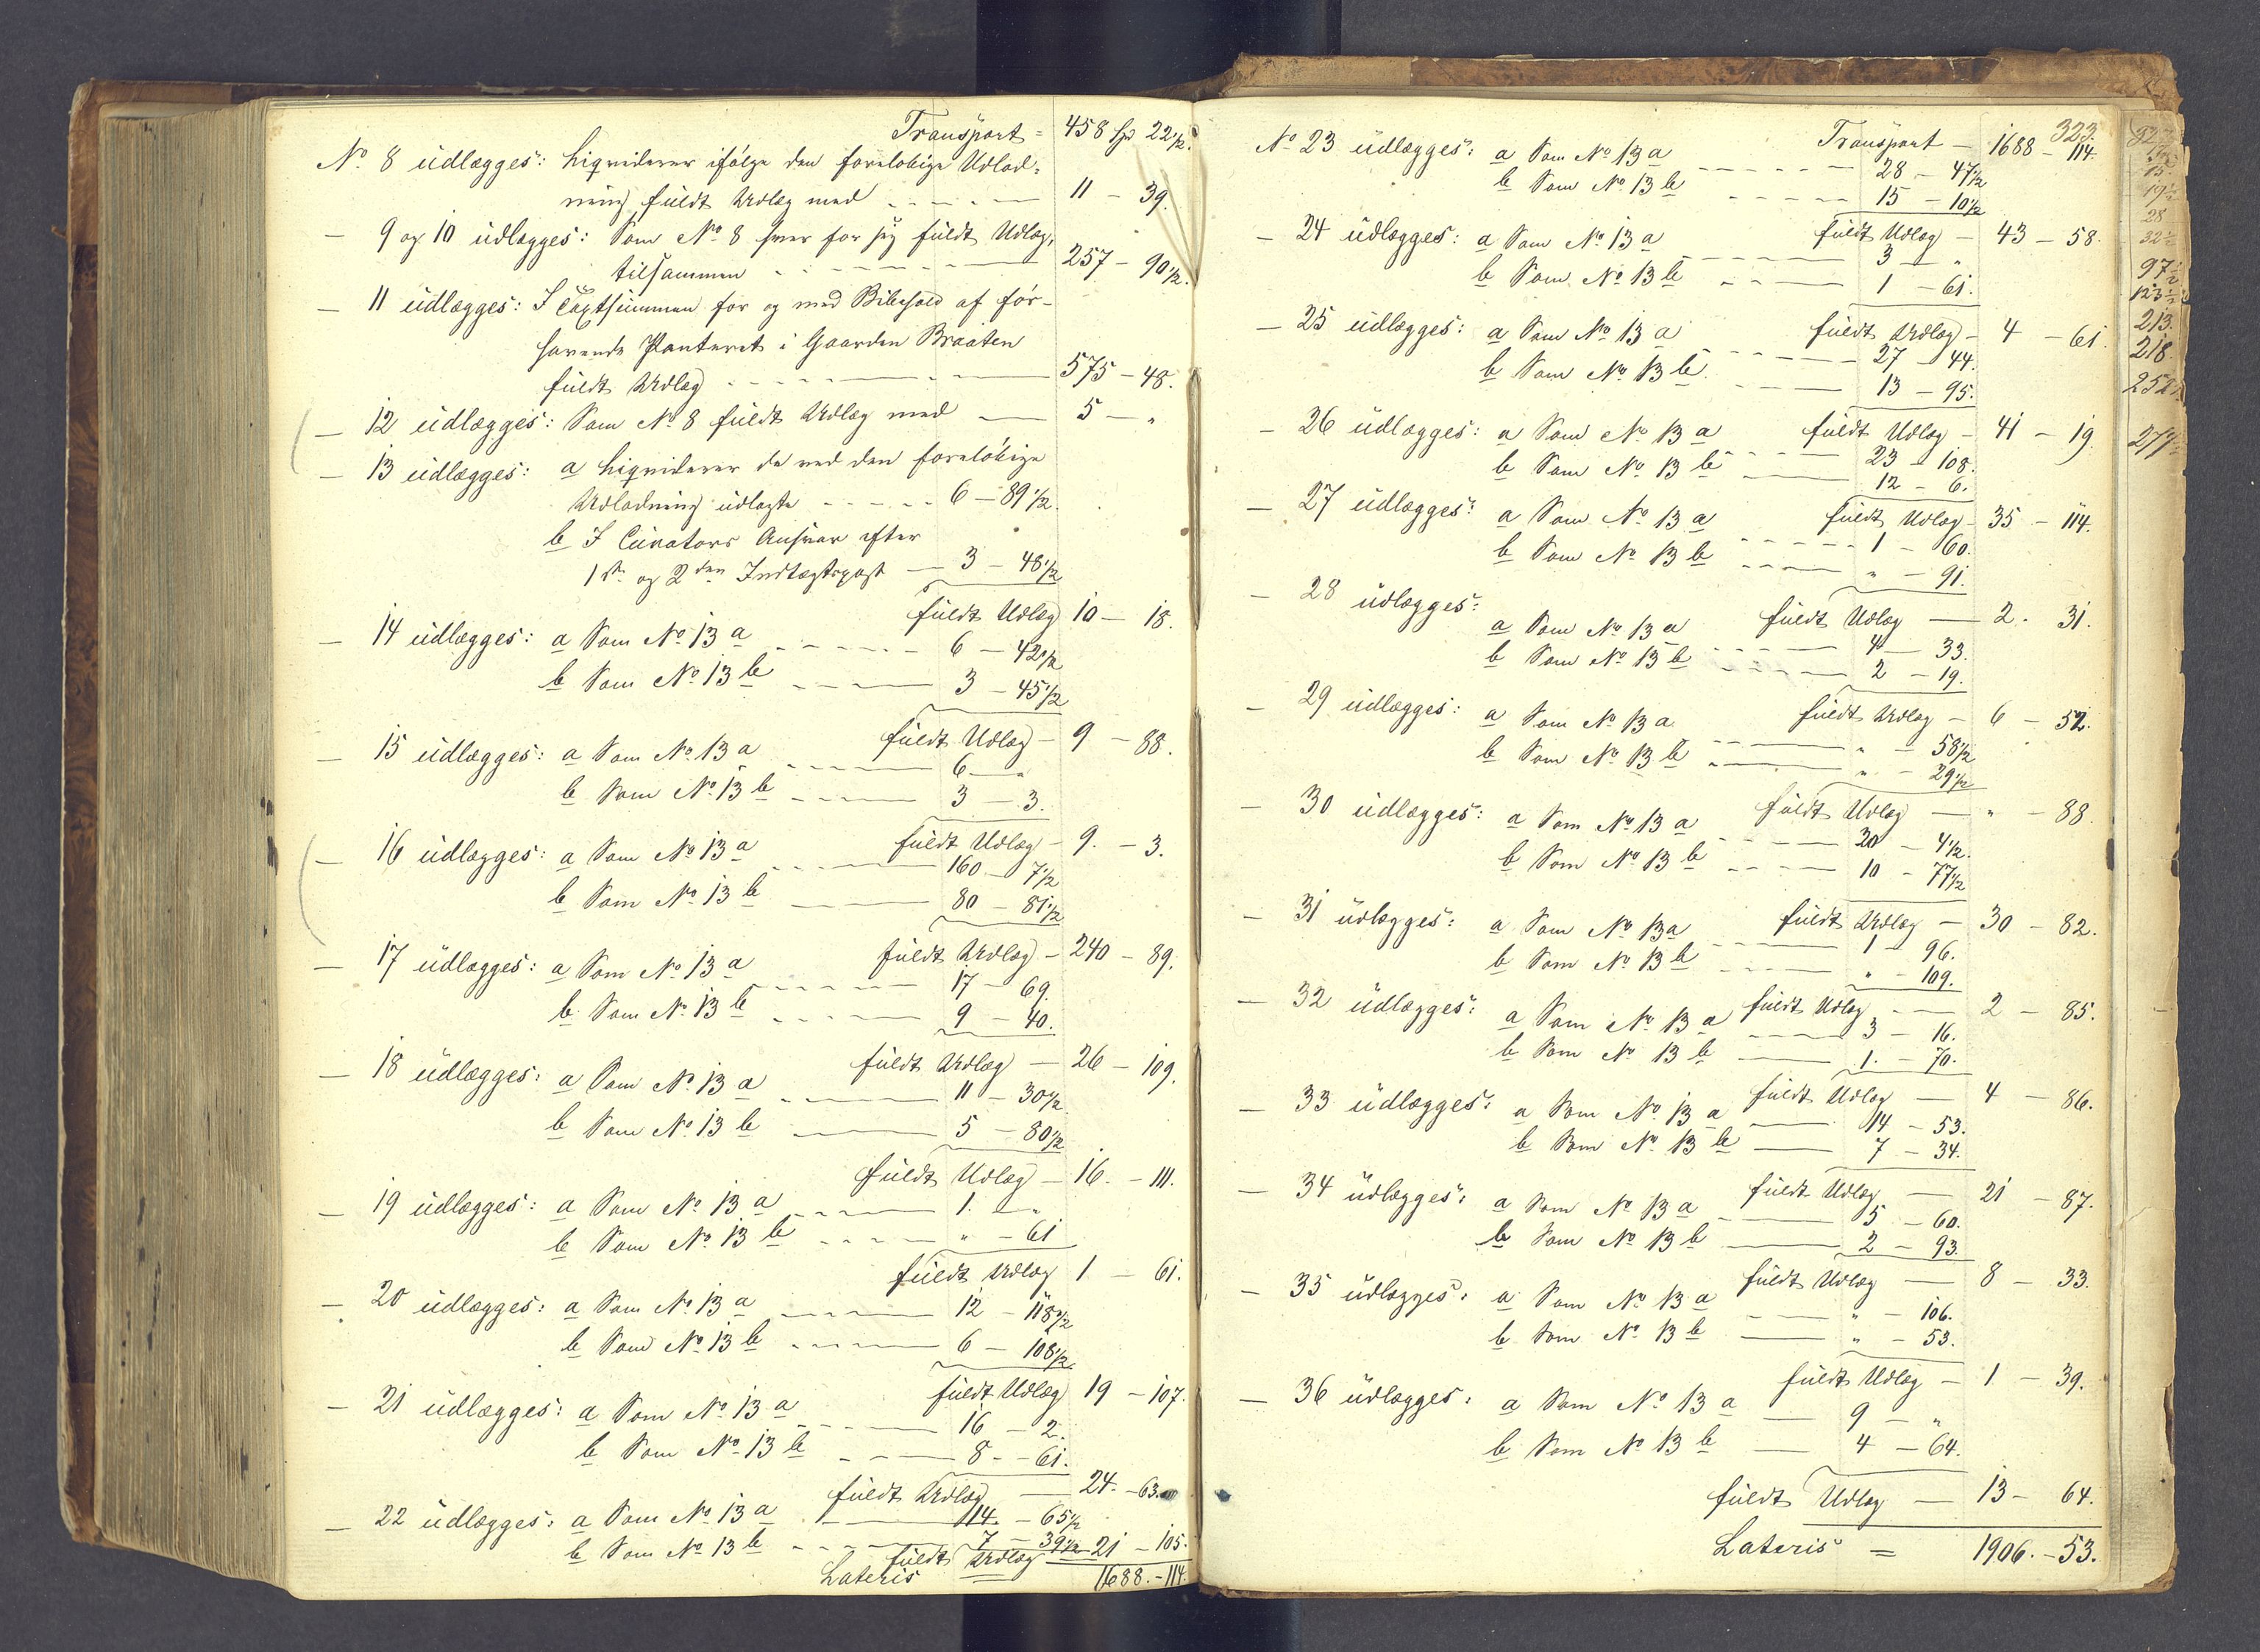 Transport = 458 Sp 22 1/2.
No 8 udlægges: Liqviderer ifølge den foreløbige Udlod-
ning fuldt Udlæg med - - - 11 - 39.
- 9 og 10 udlægges: Som No 8 hver for sig fuldt Udlæg,
tilsammen - - - 257 - 90 1/2.
- 11 udlægges: I for og med Bibehold af før-
havende Panteret i Gaarden Braaten
fuldt Udlæg - - - 575 - 48.
- 12 udlægges: Som No 8 fuldt Udlæg med - 5 - "
- 13 udlægges: a Liqviderer de ved den foreløbige
Udlodning udlagte - - - 6 - 89 1/2.
b I Curators Ansvar efter
1ste og 2den Indtægtspost - 3 - 48 1/2
fuldt Udlæg 10 - 18.
- 14 udlægges: a Som No 13 a - - - 6 - 42 1/2
b Som No 13 b - - - 3 - 45 1/2
fuldt Udlæg - 9 - 88.
- 15 udlægges: a Som No 13 a - - - 6 - "
b Som No 13 b - - - 3 - 3.
fuldt Udlæg - 9. - 3.
- 16 udlægges: a Som No 13 a - - - 160 - 7 1/2
b Som No 13 b - - - 80 - 81 1/2
fuldt Udlæg - 240 - 89.
- 17 udlægges: a Som No 13 a - - - 17 - 69.
b Som No 13 b - - - 9 - 40.
fuldt Udlæg - 26 - 109.
- 18 udlægges: a Som No 13 a - - - 11 - 30 1/2
b Som No 13 b - - - 5 - 80 1/2
fuldt Udlæg - 16. - 111.
- 19 udlægges: a Som No 13 a - - - 1. - "
b Som No 13 b - - - " - 61
fuldt Udlæg 1 - 61.
- 20 udlægges: a Som No 13 a - - - 12 - 118 1/2
b Som No 13 b - - - 6 - 108 1/2
fuldt Udlæg 19 - 107.
- 21 udlægges: a Som No 13 a - - - 16 - 2.
b Som No 13 b - - - 8 - 61.
fuldt Udlæg - 24. - 63.
- 22 udlægges: a Som No 13 a - - - 14. - 65 1/2
b Som No 13 b - - - 7 - 39 1/2
fuldt Udlæg 21 - 105.
Lateris = 1688. - 114.
323.
Transport - 1688 - 114.
No 23 udlægges: a Som No 13 a - - - 28 - 47 1/2
b Som No 13 b - - - 15 - 10 1/2
fuldt Udlæg - 43 - 58.
- 24 udlægges: a Som No 13 a - - - 3 - "
b Som No 13 b - - - 1 - 61.
fuldt Udlæg - 4 - 61.
- 25 udlægges: a Som No 13 a - - - 27 - 44.
b Som No 13 b - - - 13 - 95.
fuldt Udlæg - 41 - 19.
- 26 udlægges: a Som No 13 a - - - 23 - 108.
b Som No 13 b - - - 12 - 6.
fuldt Udlæg - 35 - 114.
- 27 udlægges: a Som No 13 a - - - 1 - 60.
b Som No 13 b - - - " - 91.
fuldt Udlæg - 2. 31.
- 28 udlægges:
a Som No 13 a - - - 4 - 33.
b Som No 13 b - - - 2 - 19.
fuldt Udlæg - 6 - 52.
- 29 udlægges: a Som No 13 a - - - " - 58 1/2
b Som No 13 b - - - " - 29 1/2
fuldt Udlæg - " - 88.
- 30 udlægges: a Som No 13 a - - - 20 - 4 1/2.
b Som No 13 b - - - 10 - 77 1/2
fuldt Udlæg - 30 - 82.
- 31 udlægges: a Som No 13 a - - - 1 - 96.
b Som No 13 b - - - " - 109.
fuldt Udlæg - 2 - 85.
- 32 udlægges: a Som No 13 a - - - 3 - 16.
b Som No 13 b - - - 1. - 70.
fuldt Udlæg - 4 - 86.
- 33 udlægges: a Som No 13 a - - - 14 - 53.
b Som No 13 b - - - 7 - 34.
fuldt Udlæg - 21 - 87.
- 34 udlægges: a Som No 13 a - - - 5 - 60.
b Som No 13 b - - - 2 - 93.
fuldt Udlæg - 8 - 33.
- 35 udlægges: a Som No 13 a - - - " - 106.
b Som No 13 b - - - " - 53.
fuldt Udlæg - 1 - 39.
- 36 udlægges: a Som No 13 a - 9 - "
b Som No 13 b - 4 - 64.
fuldt Udlæg - 13 - 64.
Lateris = 1906. - 53.
28
32 1/2
97 1/2
123 1/2
213.
218.